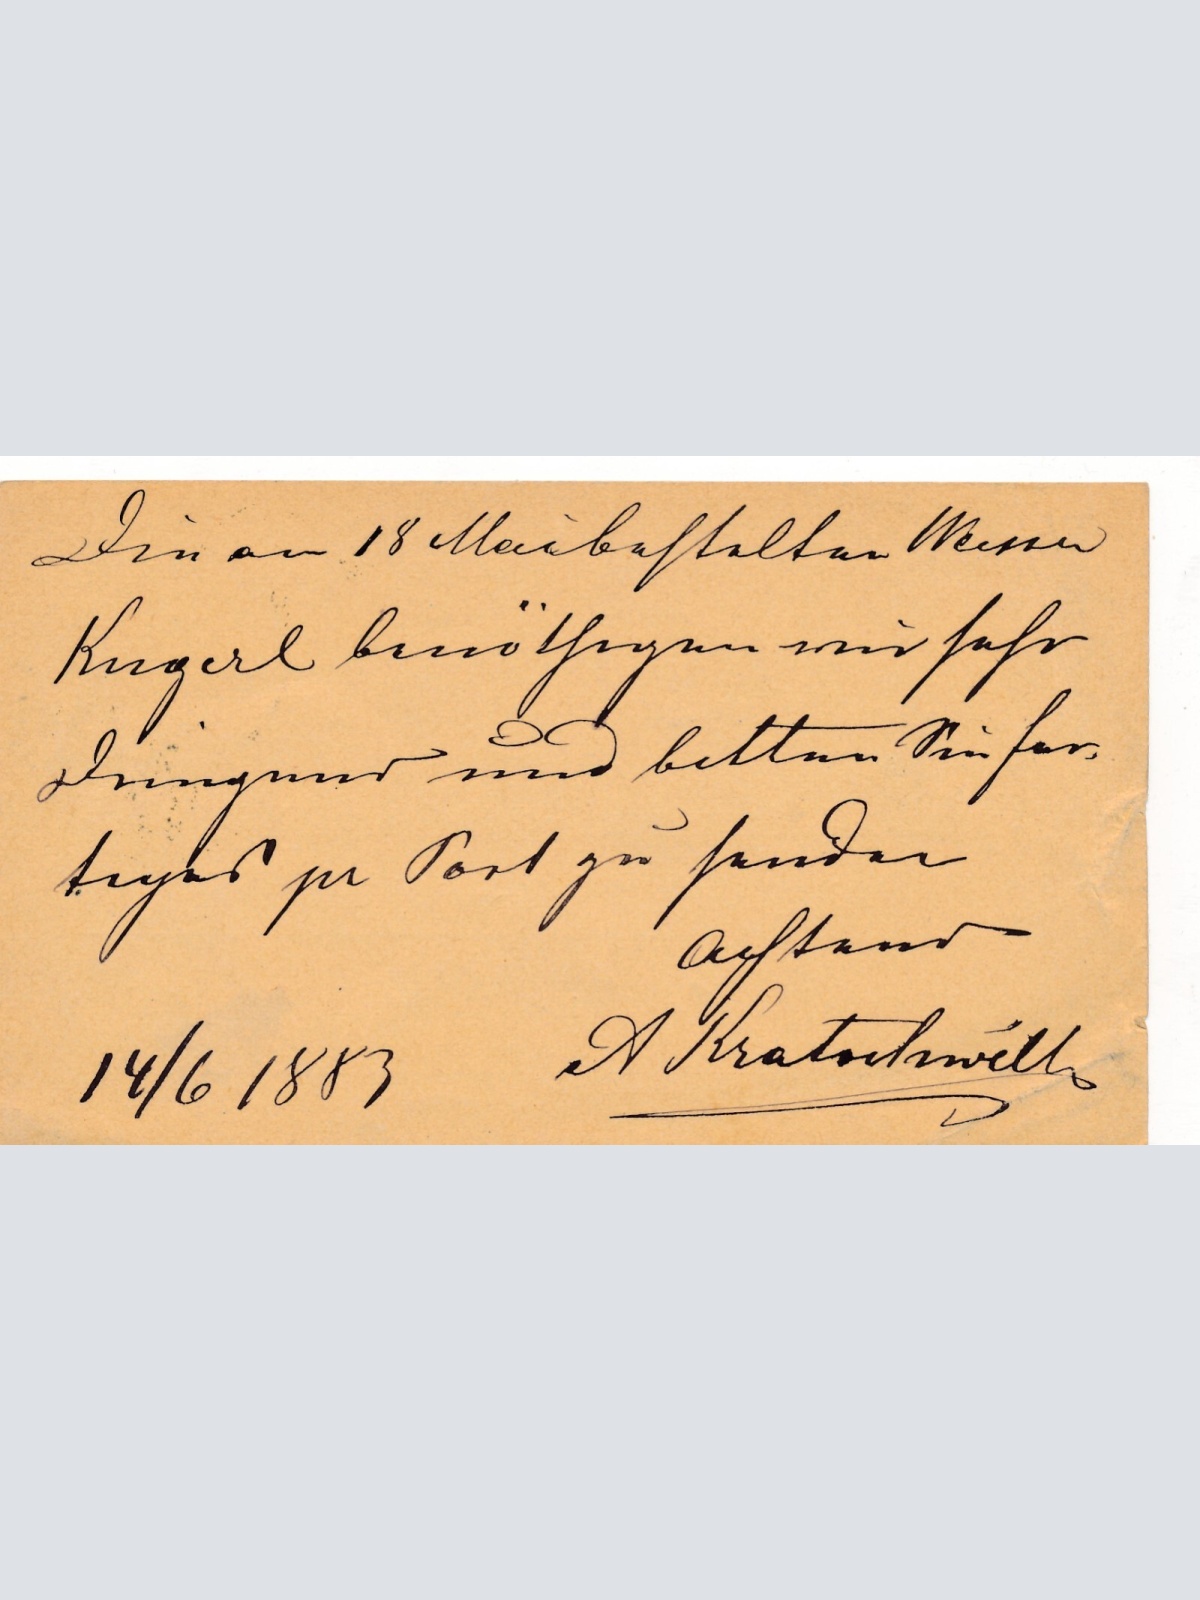 Die am 18 Mai bestellten Weisser
Kugerl benöthigen wir sehr
Dringend und bitten Sie fer-
tiges pr Post zu senden
Achtend
A Kratochwill
14/6 1883